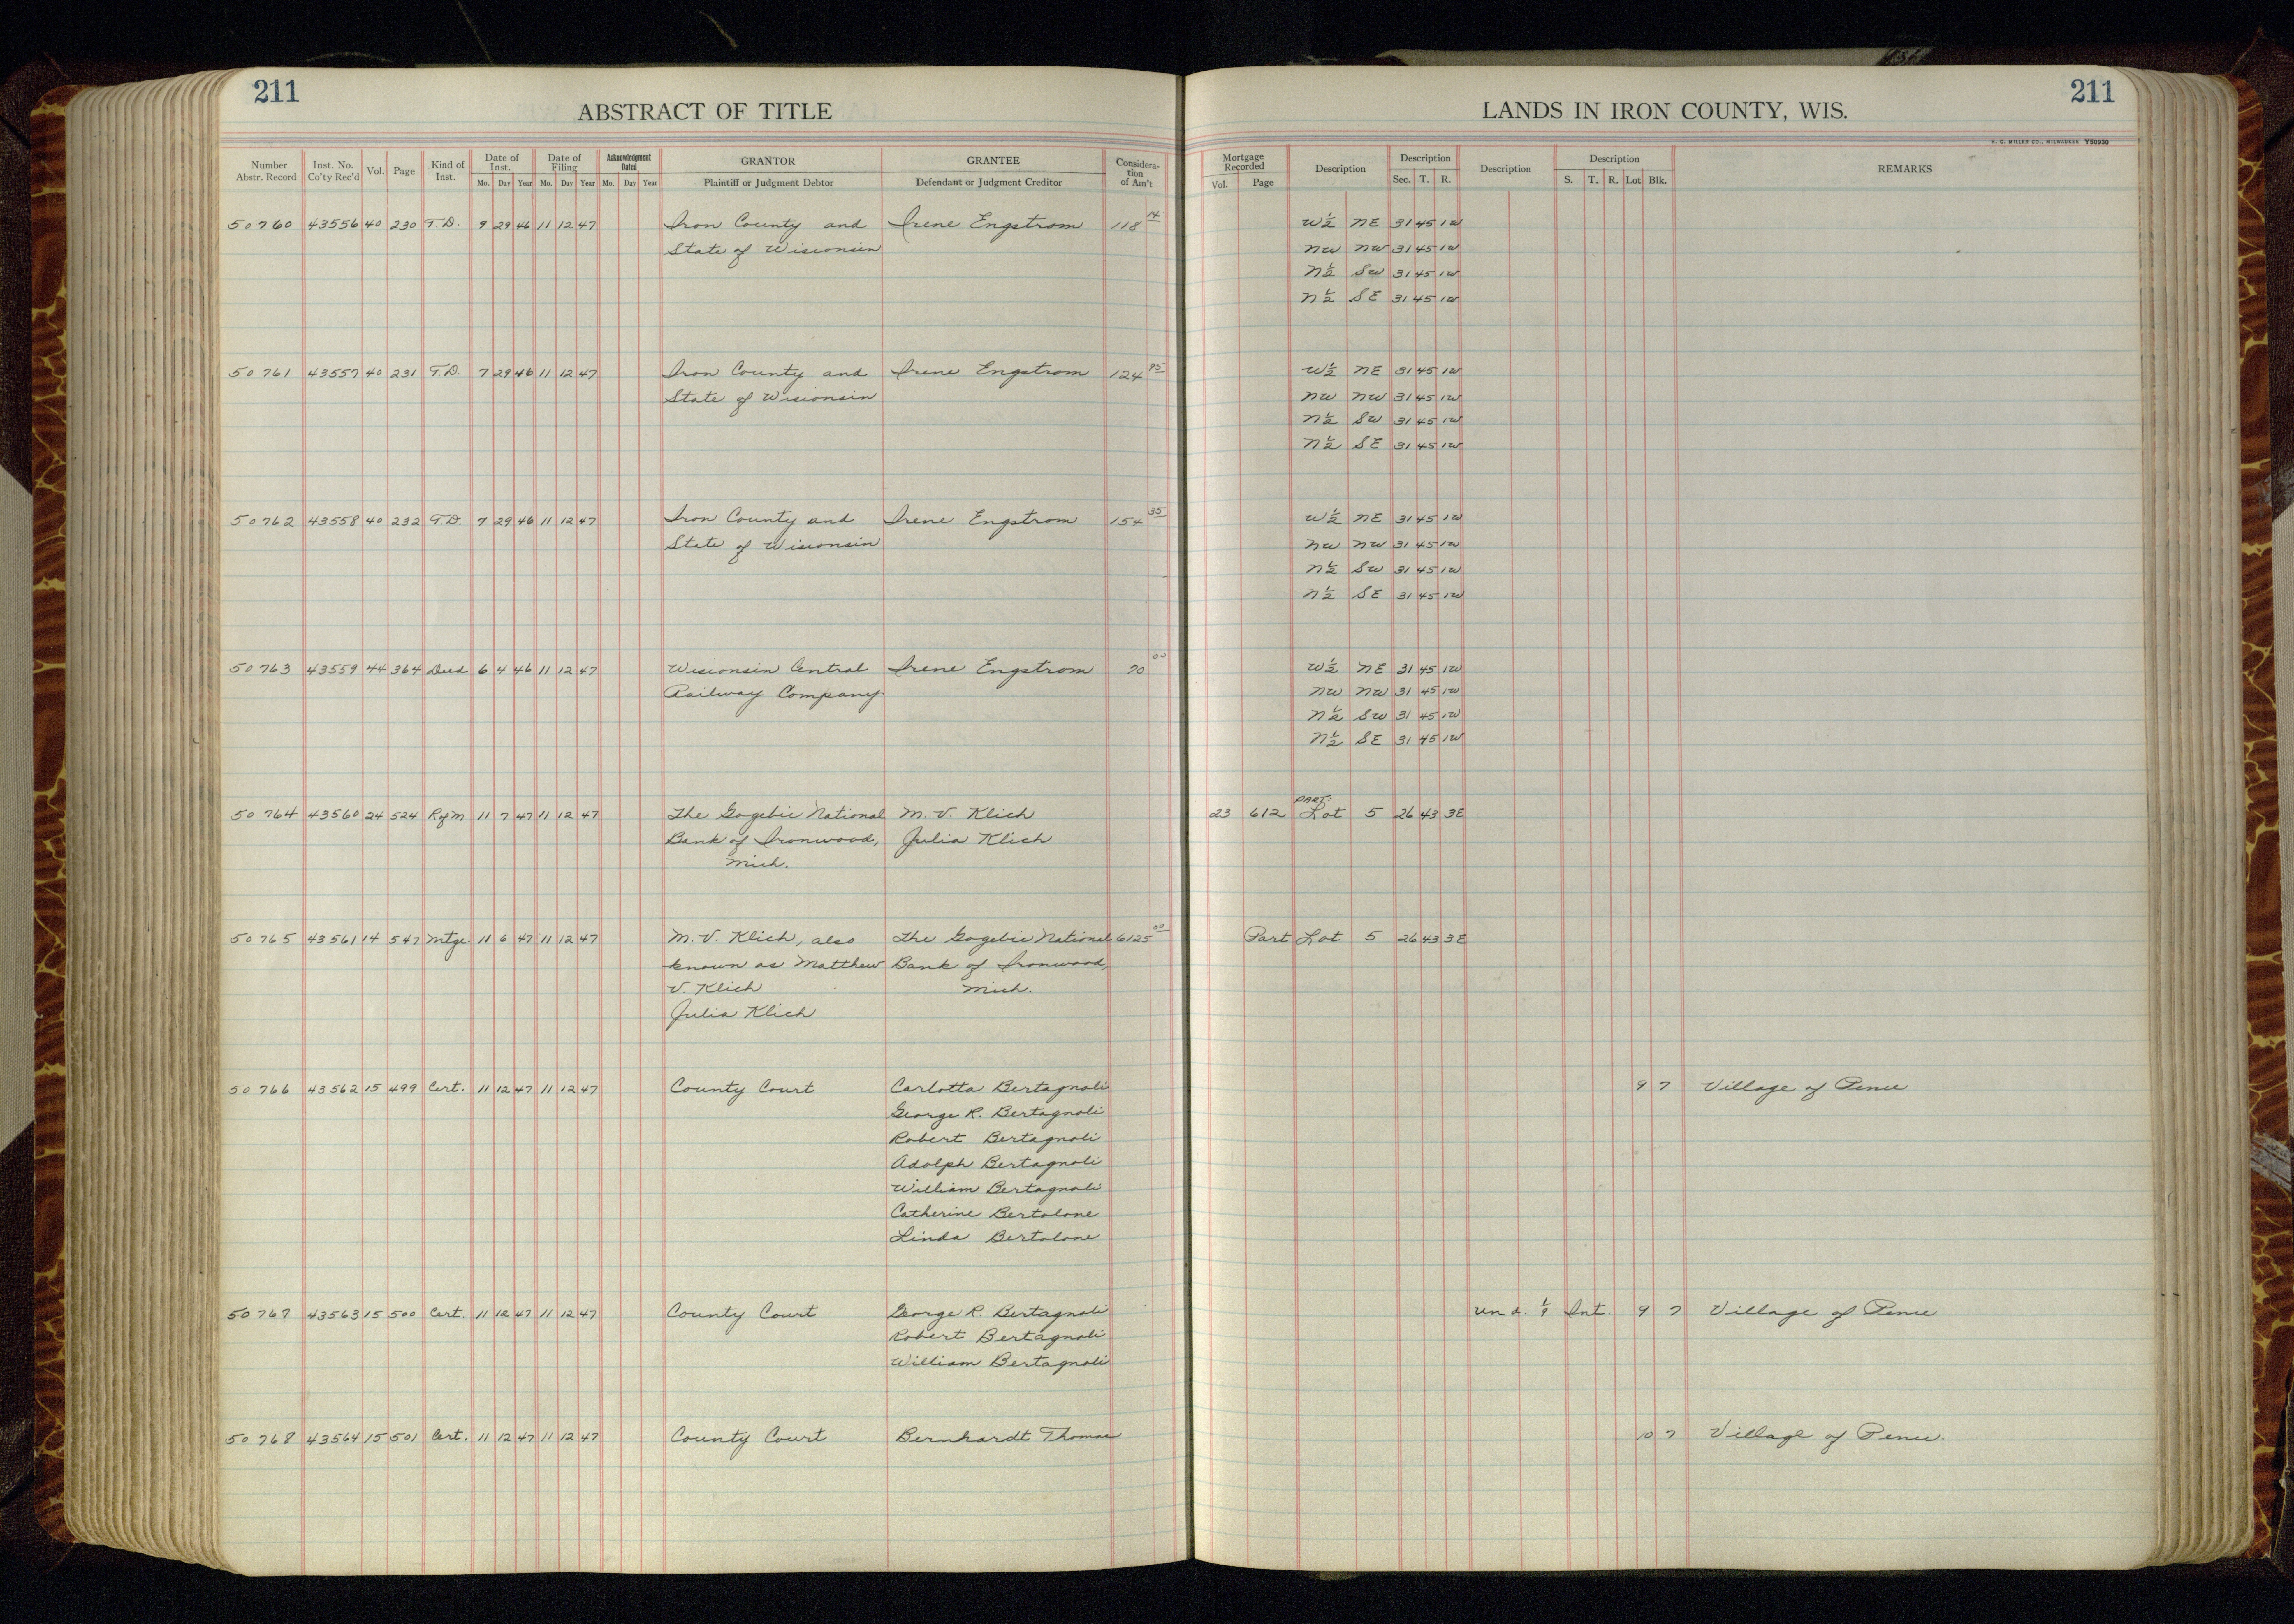 211
ABSTRACT OF TITLE
LANDS IN IRON COUNTY, WIS.
211
H. C. MILLER CO., MILWAUKEE Y50930
Number Abstr. Record | Inst. No. Co'ty Rec'd | Vol. | Page | Kind of Inst. | Date of Inst. Mo. Day Year | Date of Filing Mo. Day Year | Acknowledgment Dated Mo. Day Year | GRANTOR Plaintiff or Judgment Debtor | GRANTEE Defendant or Judgment Creditor | Consideration of Am't | Mortgage Recorded Vol. Page | Description | Description Sec. T. R. | Description | Description S. T. R. Lot Blk. | REMARKS
50760 43556 40 230 T.D. 9 29 46 11 12 47 Iron County and Irene Engstrom 118 14 W½ NE 31 45 1W
State of Wisconsin NW NW 31 45 1W
N½ SW 31 45 1W
N½ SE 31 45 1W
50761 43557 40 231 T.D. 7 29 46 11 12 47 Iron County and Irene Engstrom 124 95 W½ NE 31 45 1W
State of Wisconsin NW NW 31 45 1W
N½ SW 31 45 1W
N½ SE 31 45 1W
50762 43558 40 232 T.D. 7 29 46 11 12 47 Iron County and Irene Engstrom 154 35 W½ NE 31 45 1W
State of Wisconsin NW NW 31 45 1W
N½ SW 31 45 1W
N½ SE 31 45 1W
50763 43559 44 364 Deed 6 4 46 11 12 47 Wisconsin Central Irene Engstrom 70 00 W½ NE 31 45 1W
Railway Company NW NW 31 45 1W
N½ SW 31 45 1W
N½ SE 31 45 1W
PART:
50764 43560 24 524 RofM 11 7 47 11 12 47 The Gogebic National M. V. Klich 23 612 Lot 5 26 43 3E
Bank of Ironwood, Julia Klich
Mich.
50765 43561 14 547 Mtge. 11 6 47 11 12 47 M. V. Klich, also The Gogebic National 6125 00 Part Lot 5 26 43 3E
known as Matthew Bank of Ironwood,
V. Klich Mich.
Julia Klich
50766 43562 15 499 Cert. 11 12 47 11 12 47 County Court Carlotta Bertagnoli 9 7 Village of Pence
George R. Bertagnoli
Robert Bertagnoli
Adolph Bertagnoli
William Bertagnoli
Catherine Bertolone
Linda Bertolone
50767 43563 15 500 Cert. 11 12 47 11 12 47 County Court George R. Bertagnoli Und. 1/9 Int. 9 7 Village of Pence
Robert Bertagnoli
William Bertagnoli
50768 43564 15 501 Cert. 11 12 47 11 12 47 County Court Bernhardt Thomae 10 7 Village of Pence.